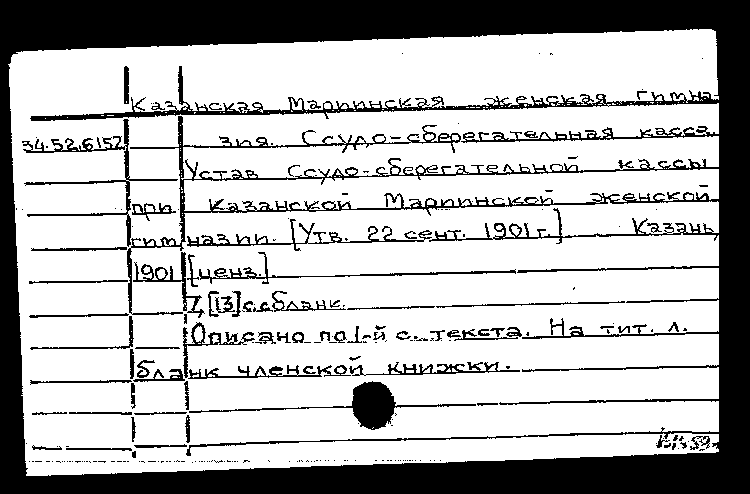 Казанская Мариинская женская гимна-
34.52.6152 зия. Ссудо-сберегательная касса.
Устав Ссудо-сберегательной кассы
при Казанской Мариинской женской
гимназии. [Утв. 22 сент. 1901 г.] Казань,
1901 [ценз.].
7, [13] с. с бланк.
Описано по 1-й с. текста. На тит. л.
бланк членской книжки.